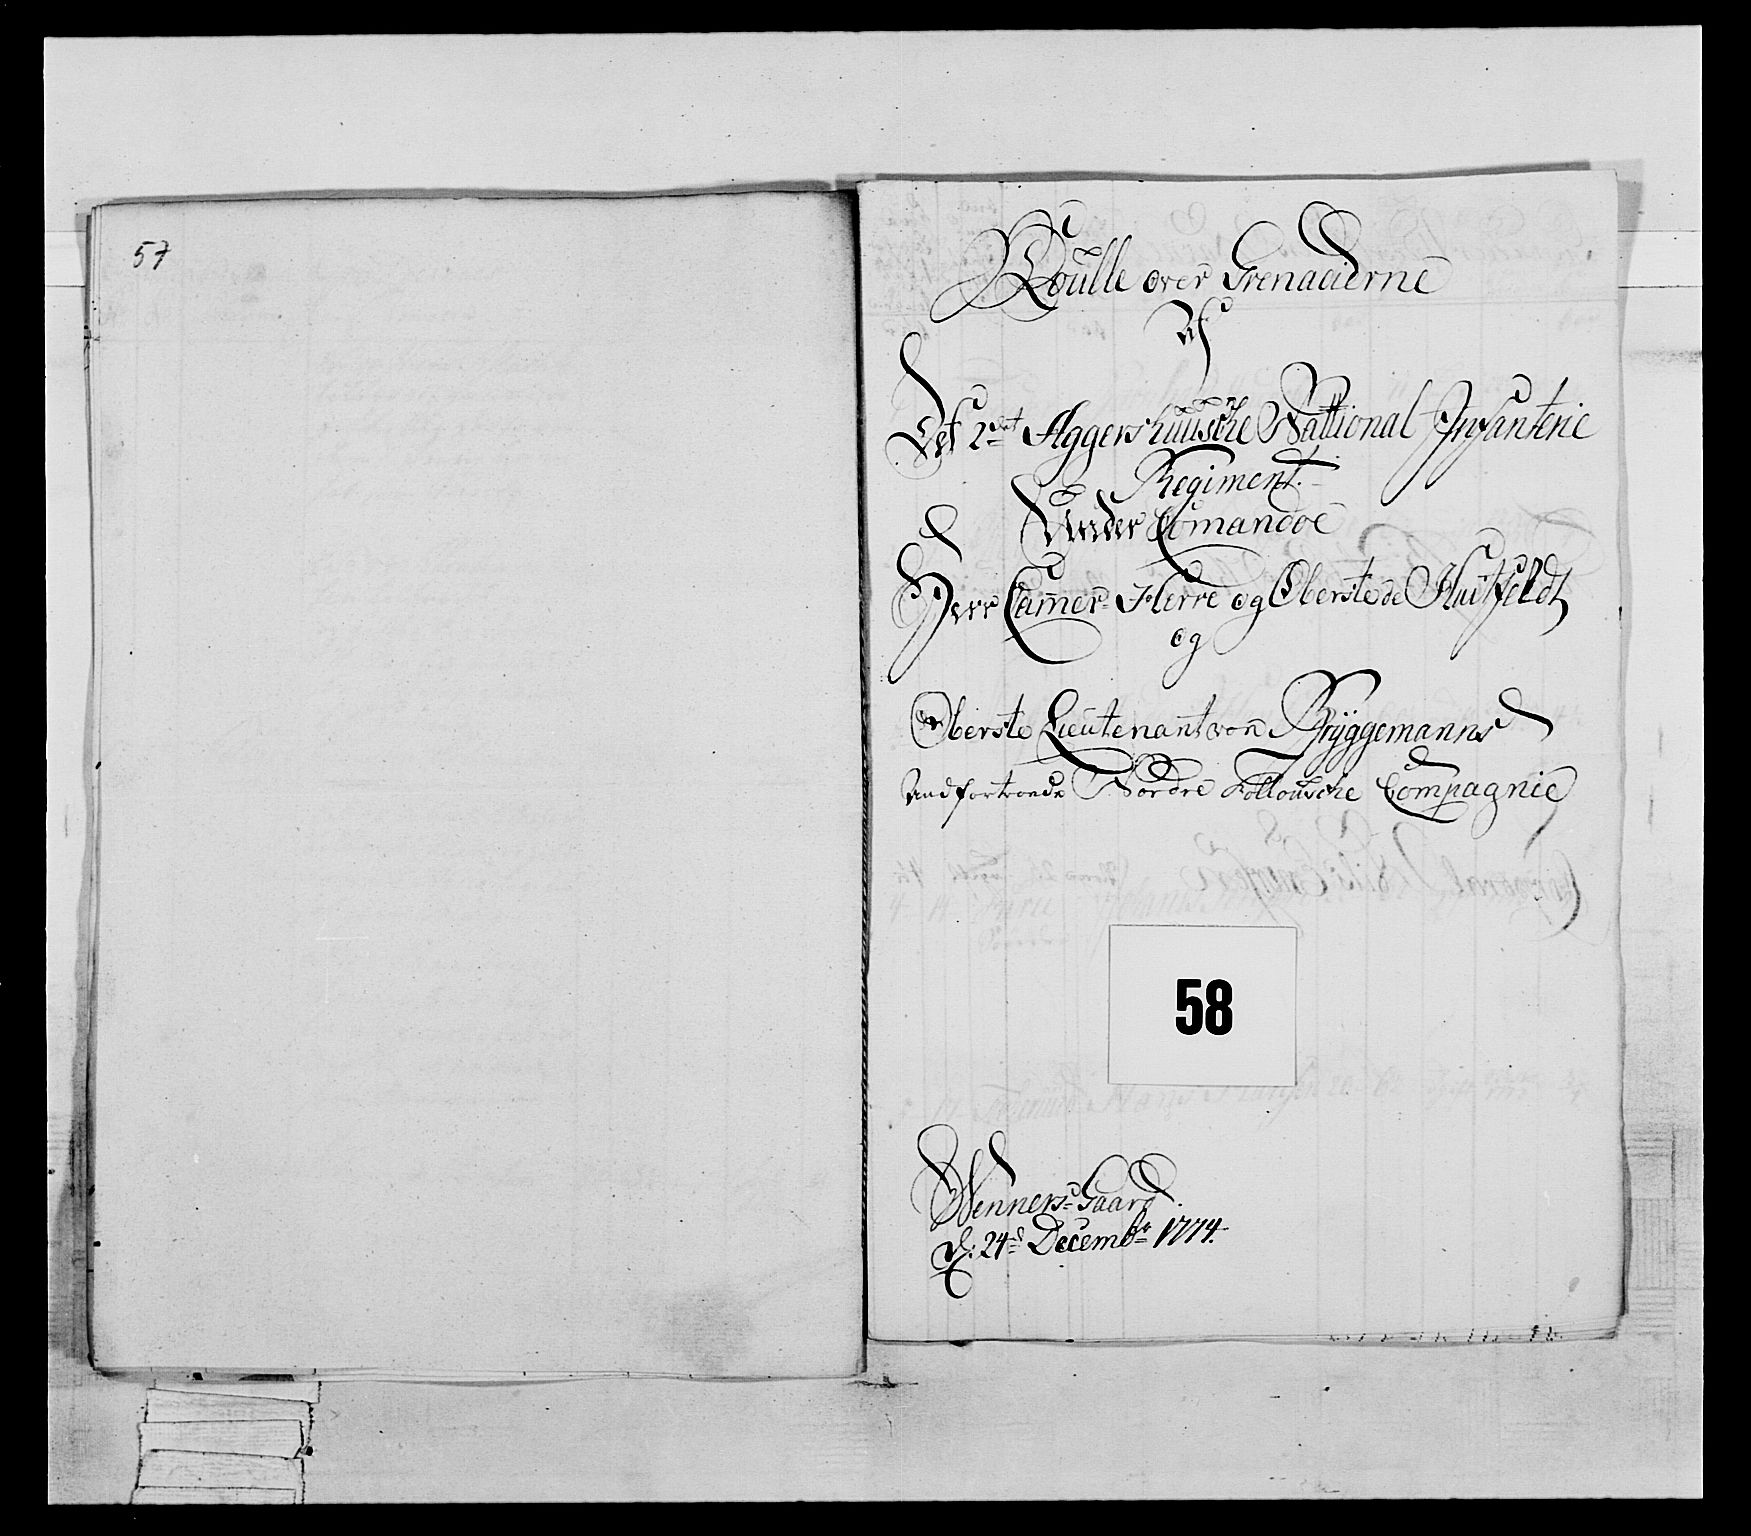 57
Roulle over Grenadierne
Af
Det 2det Aggershuusche National Infanterie
Regiment.
Under Comandoe
Herr Cammer-Herre og Oberste de Huitfeldt
og
Oberste Lieutenant von Brÿggemanns
Andfortroede Nordre Follousche Compagnie
58
Wenners-Gaard.
D: 24d Decembr 1774.